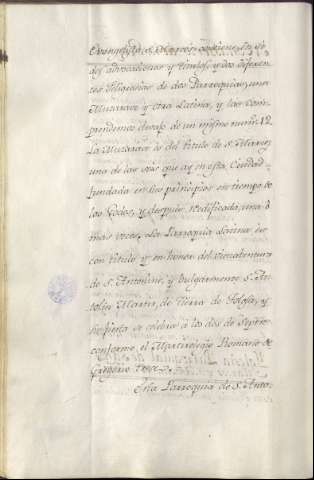 Evangelista
dos advocaciones y titulos, y dos diferen-
tes feligresias de dos Parroquias, una
Muzarave y otra Latina, y las com-
prendemos debaxo de un mismo num.º 12
La Muzarave es del titulo de S. Marcos
una de las seis que ay en esta Ciudad
fundada en los principios en tiempo de
los Godos, y después redificada, una ô
mas veces. La Parroquia Latina es
con titulo y en honor del
de S. Antonino, y vulgarmente S. An-
tolin Martir, de tierra de Tolosa, y
su fiesta se celebra â los dos de Septre.
conforme el Martirologio Romano de
Gregorio trece.
Esta Parroquia de S. Anto-